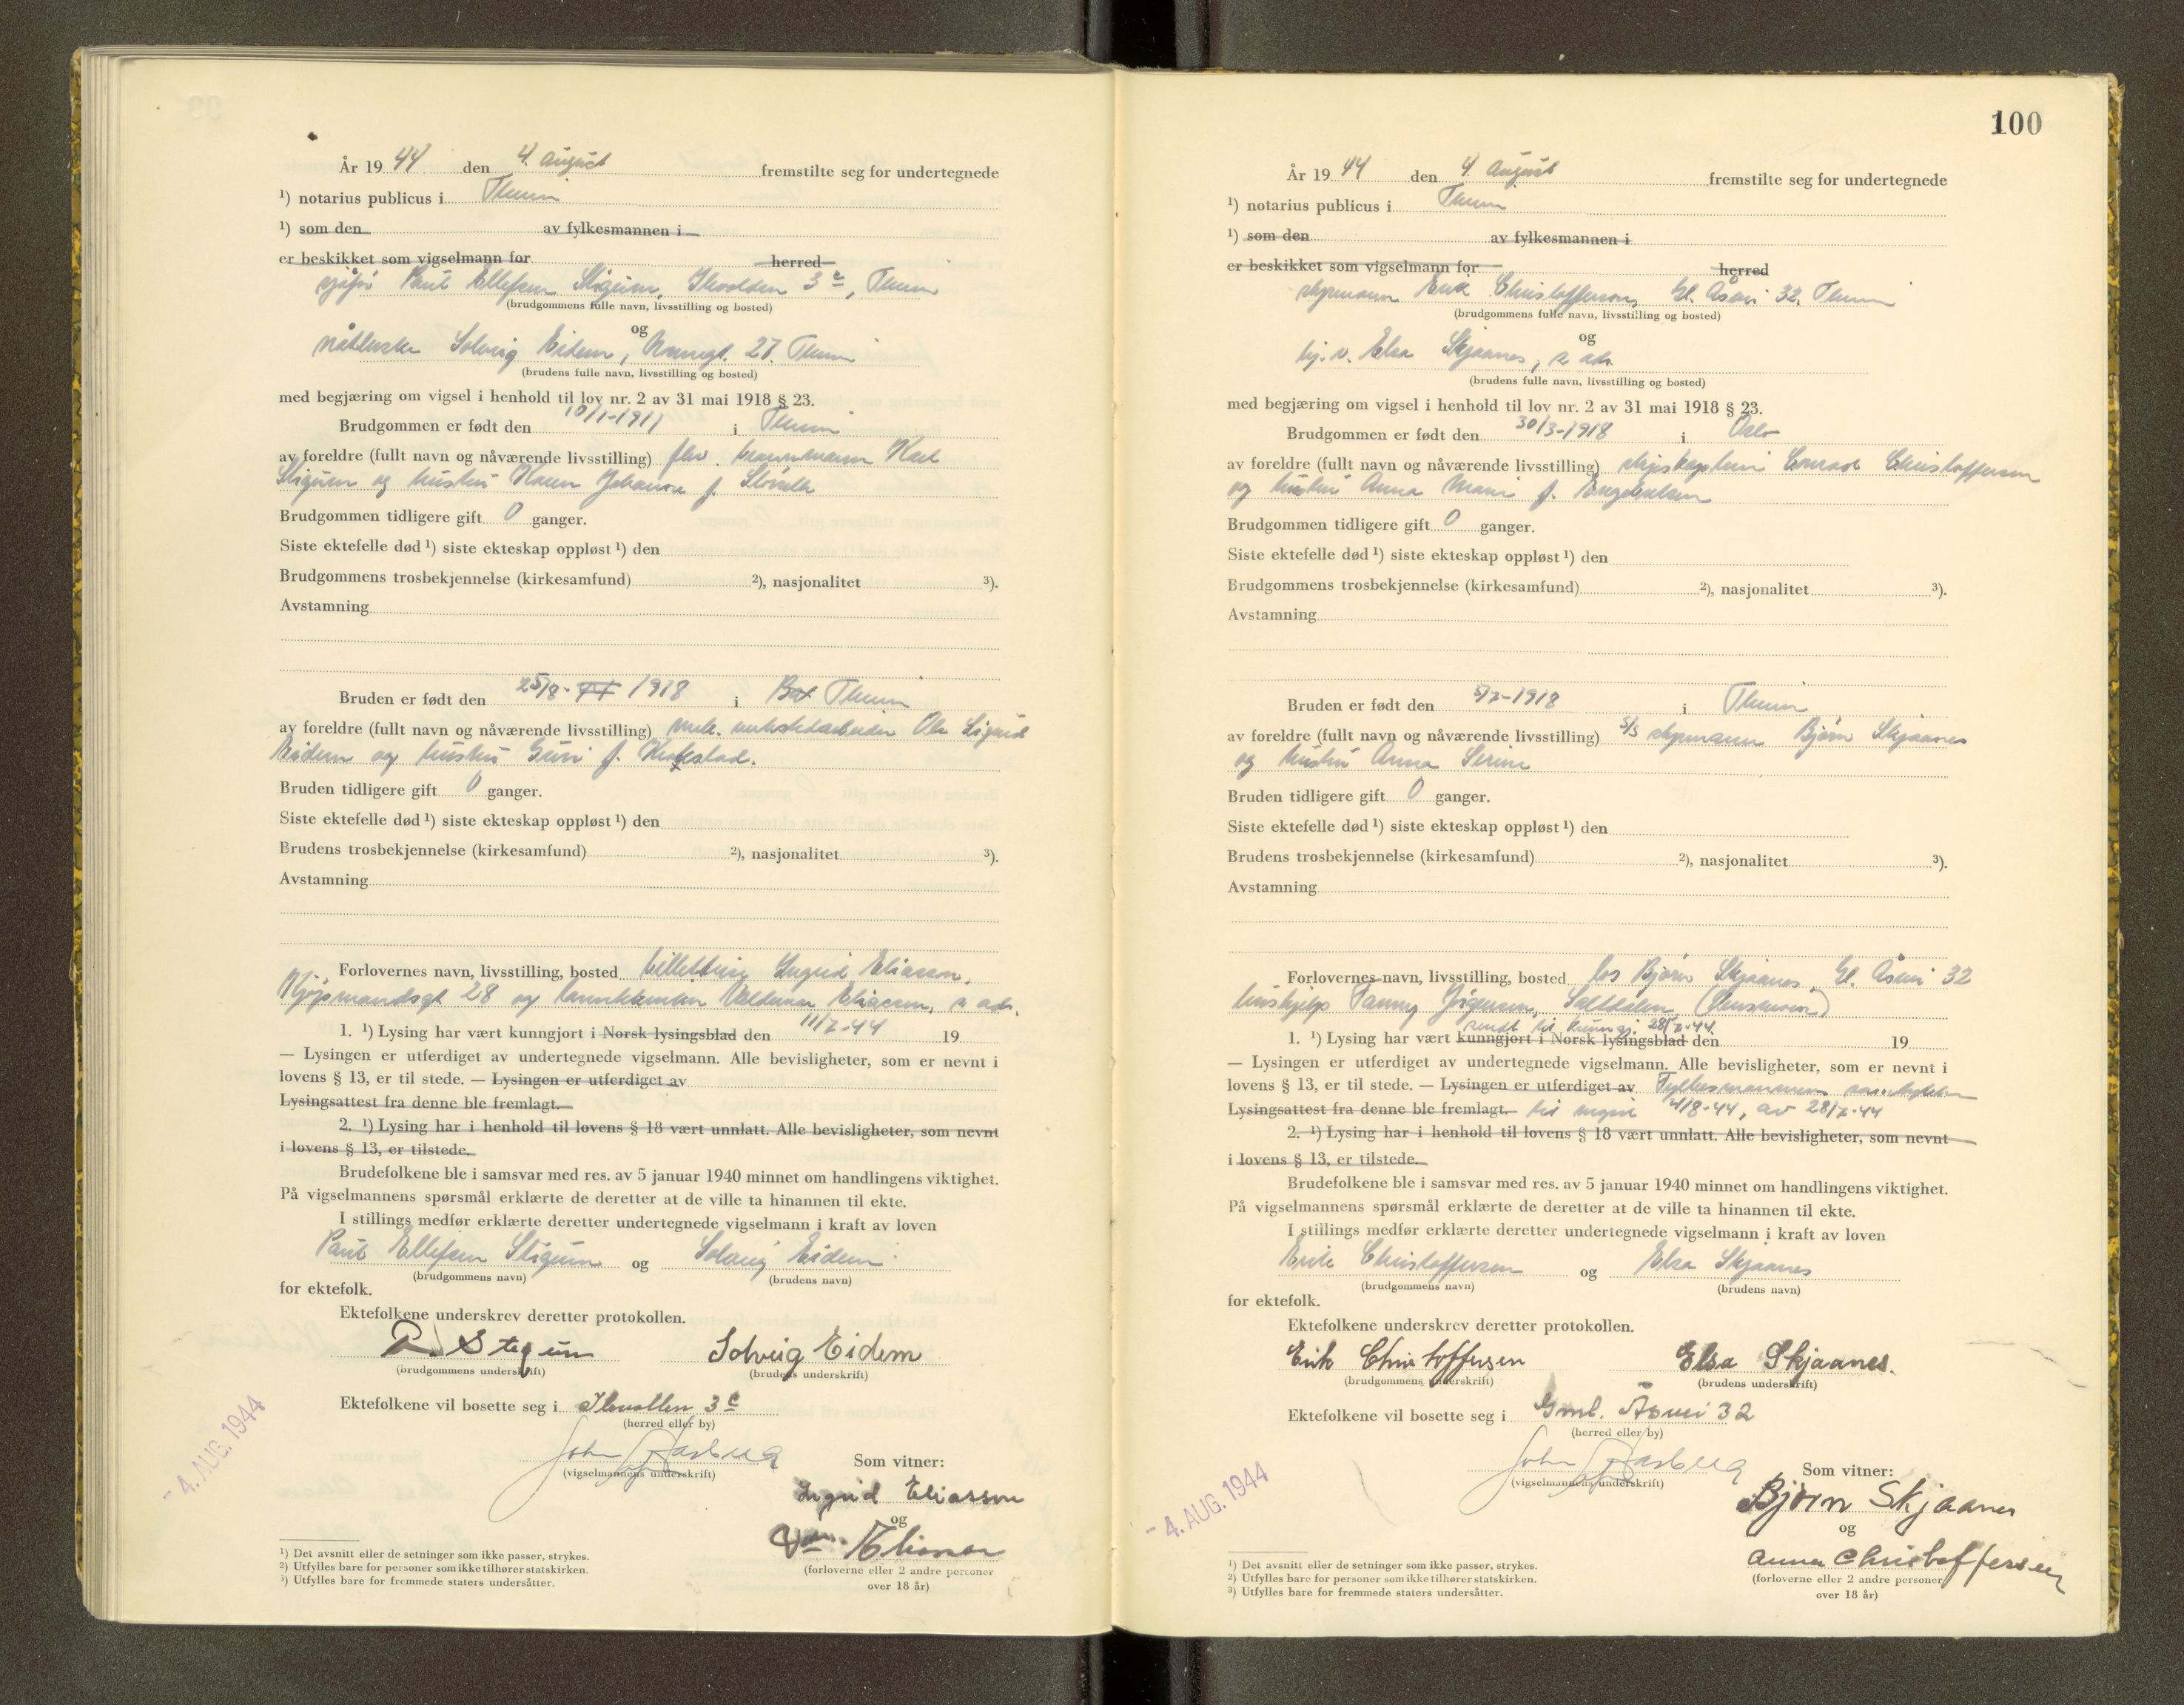 År 19 44 den 4. august fremstilte seg for undertegnede
¹) notarius publicus i Theim
¹) som den av fylkesmannen i
er beskikket som vigselmann for herred
sjåfør Paul Ellefsen Stigum, Ilevolden 3 c, Theim
(brudgommens fulle navn, livsstilling og bosted)
og
Solveig Eidem, 27. Theim
(brudens fulle navn, livsstilling og bosted)
med begjæring om vigsel i henhold til lov nr. 2 av 31 mai 1918 § 23.
Brudgommen er født den 10/1-1911 i Theim
av foreldre (fullt navn og nåværende livsstilling) fhv. Karl
Stigum og hustru Karen Johanna f.
Brudgommen tidligere gift 0 ganger.
Siste ektefelle død ¹) siste ekteskap oppløst ¹) den
Brudgommens trosbekjennelse (kirkesamfund) ²), nasjonalitet ³).
Avstamning
Bruden er født den 25/8- 1918 i Theim
av foreldre (fullt navn og nåværende livsstilling) mek. verkstedarbeider Ola Sigurd
Eidem og hustru Guri f.
Bruden tidligere gift 0 ganger.
Siste ektefelle død ¹) siste ekteskap oppløst ¹) den
Brudens trosbekjennelse (kirkesamfund) ²), nasjonalitet ³).
Avstamning
Forlovernes navn, livsstilling, bosted Ingrid Eliassen,
Kjøpmandsgt 28 og Valdemar Eliassen, s. adr.
1. ¹) Lysing har vært kunngjort i Norsk lysingsblad den 11/7-44 19
— Lysingen er utferdiget av undertegnede vigselmann. Alle bevisligheter, som er nevnt i
lovens § 13, er til stede. — Lysingen er utferdiget av
Lysingsattest fra denne ble fremlagt.
2. ¹) Lysing har i henhold til lovens § 18 vært unnlatt. Alle bevisligheter, som nevnt
i lovens § 13, er tilstede.
Brudefolkene ble i samsvar med res. av 5 januar 1940 minnet om handlingens viktighet.
På vigselmannens spørsmål erklærte de deretter at de ville ta hinannen til ekte.
I stillings medfør erklærte deretter undertegnede vigselmann i kraft av loven
Paul Ellefsen Stigum og Solveig Eidem
(brudgommens navn) (brudens navn)
for ektefolk.
Ektefolkene underskrev deretter protokollen.
P. Stigum Solveig Eidem
(brudgommens underskrift) (brudens underskrift)
Ektefolkene vil bosette seg i Ilevollen 3 c
(herred eller by)
John Aasberg
(vigselmannens underskrift)
Som vitner:
Ingrid Eliassen
og
Eliassen
(forloverne eller 2 andre personer
over 18 år)
- 4. AUG. 1944
¹) Det avsnitt eller de setninger som ikke passer, strykes.
²) Utfylles bare for personer som ikke tilhører statskirken.
³) Utfylles bare for fremmede staters undersåtter.
100
År 19 44 den 4. august fremstilte seg for undertegnede
¹) notarius publicus i Theim
¹) som den av fylkesmannen i
er beskikket som vigselmann for herred
styrmann Erik Christoffersen, Gl. Åsvei 32, Theim
(brudgommens fulle navn, livsstilling og bosted)
og
hj. v. Elsa Skjaanes, s. adr.
(brudens fulle navn, livsstilling og bosted)
med begjæring om vigsel i henhold til lov nr. 2 av 31 mai 1918 § 23.
Brudgommen er født den 30/3-1918 i Oslo
av foreldre (fullt navn og nåværende livsstilling) skipskaptein Conrad Christoffersen
og hustru Anna Marie f. Engebretsen
Brudgommen tidligere gift 0 ganger.
Siste ektefelle død ¹) siste ekteskap oppløst ¹) den
Brudgommens trosbekjennelse (kirkesamfund) ²), nasjonalitet ³).
Avstamning
Bruden er født den 5/7-1918 i Theim
av foreldre (fullt navn og nåværende livsstilling) styrmann Bjørn Skjaanes
og hustru Anna Serine
Bruden tidligere gift 0 ganger.
Siste ektefelle død ¹) siste ekteskap oppløst ¹) den
Brudens trosbekjennelse (kirkesamfund) ²), nasjonalitet ³).
Avstamning
Forlovernes navn, livsstilling, bosted los Bjørn Skjaanes, Gl. Åsvei 32
hushjelp Fanny Jørgensen, Saltdalen
sendt til kunngj. 28/7-44
1. ¹) Lysing har vært kunngjort i Norsk lysingsblad den 19
— Lysingen er utferdiget av undertegnede vigselmann. Alle bevisligheter, som er nevnt i
lovens § 13, er til stede. — Lysingen er utferdiget av Fylkesmannens samtykke
Lysingsattest fra denne ble fremlagt. til vigsel 4/8-44, av 28/7-44
2. ¹) Lysing har i henhold til lovens § 18 vært unnlatt. Alle bevisligheter, som nevnt
i lovens § 13, er tilstede.
Brudefolkene ble i samsvar med res. av 5 januar 1940 minnet om handlingens viktighet.
På vigselmannens spørsmål erklærte de deretter at de ville ta hinannen til ekte.
I stillings medfør erklærte deretter undertegnede vigselmann i kraft av loven
Erik Christoffersen og Elsa Skjaanes
(brudgommens navn) (brudens navn)
for ektefolk.
Ektefolkene underskrev deretter protokollen.
Erik Christoffersen Elsa Skjaanes.
(brudgommens underskrift) (brudens underskrift)
Ektefolkene vil bosette seg i Gml. Åsvei 32
(herred eller by)
John Aasberg
(vigselmannens underskrift)
Som vitner:
Bjørn Skjaanes
og
Anna Christoffersen
(forloverne eller 2 andre personer
over 18 år)
- 4. AUG. 1944
¹) Det avsnitt eller de setninger som ikke passer, strykes.
²) Utfylles bare for personer som ikke tilhører statskirken.
³) Utfylles bare for fremmede staters undersåtter.